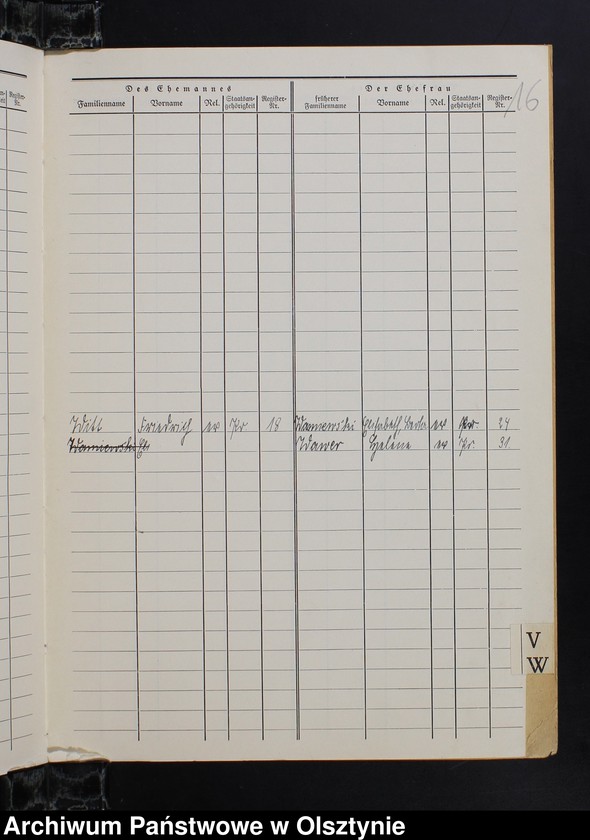 Des Ehemannes Der Ehefrau
Familienname Vorname Rel. Staatsan-gehörigkeit Register-Nr. früherer Familienname Vorname Rel. Staatsan-gehörigkeit Register-Nr.
16
Witt Friedrich ev Pr 18 Wannewski Elisabeth ev Pr. 24
Wawer Helene ev Pr. 31
V
W
Archiwum Państwowe w Olsztynie